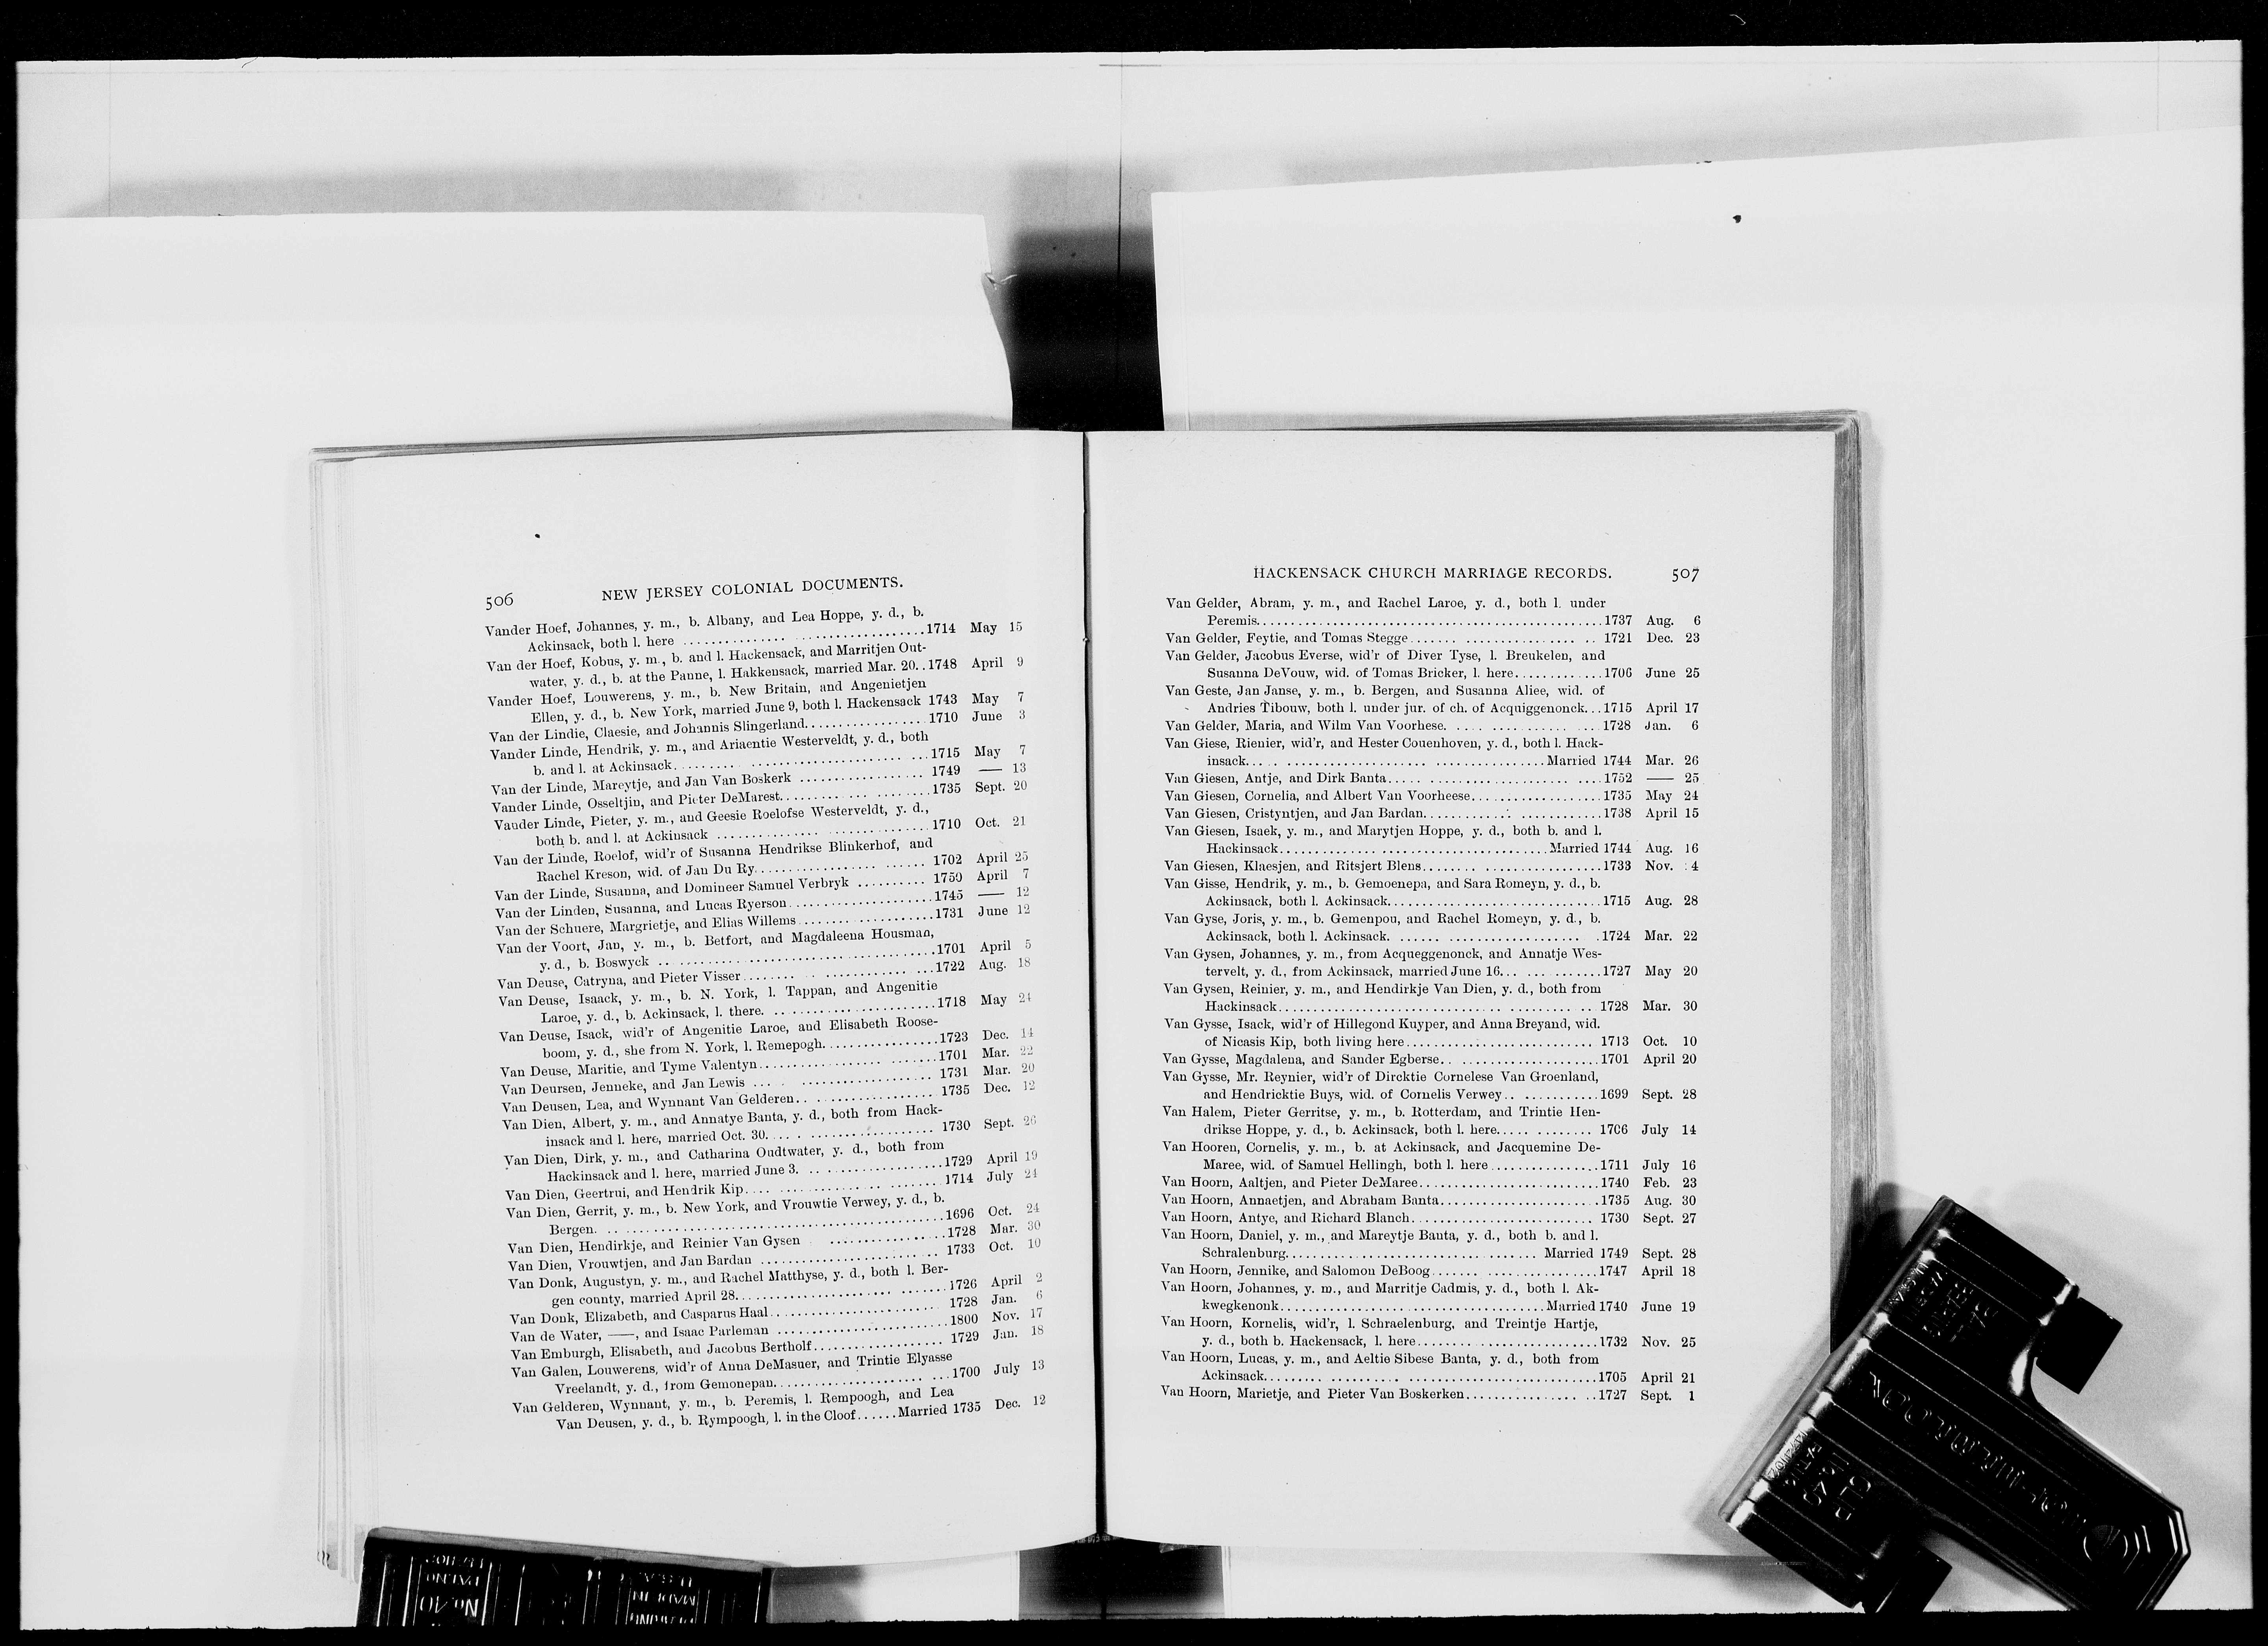 506 NEW JERSEY COLONIAL DOCUMENTS.
Vander Hoef, Johannes, y. m., b. Albany, and Lea Hoppe, y. d., b.
Ackinsack, both l. here ................................1714 May 15
Van der Hoef, Kobus, y. m., b. and l. Hackensack, and Marritjen Out-
water, y. d., b. at the Panne, l. Hakkensack, married Mar. 20..1748 April 9
Vander Hoef, Louwerens, y. m., b. New Britain, and Angenietjen
Ellen, y. d., b. New York, married June 9, both l. Hackensack 1743 May 7
Van der Lindie, Claesie, and Johannis Slingerland..................1710 June 3
Vander Linde, Hendrik, y. m., and Ariaentie Westerveldt, y. d., both
b. and l. at Ackinsack................................1715 May 7
Van der Linde, Mareytje, and Jan Van Boskerk .................. 1749 —— 13
Vander Linde, Osseltjin, and Pieter DeMarest......................1735 Sept. 20
Vander Linde, Pieter, y. m., and Geesie Roelofse Westerveldt, y. d.,
both b. and l. at Ackinsack ..............................1710 Oct. 21
Van der Linde, Roelof, wid'r of Susanna Hendrikse Blinkerhof, and
Rachel Kreson, wid. of Jan Du Ry........................ 1702 April 25
Van der Linde, Susanna, and Domineer Samuel Verbryk .......... 1750 April 7
Van der Linden, Susanna, and Lucas Ryerson.....................1745 —— 12
Van der Schuere, Margrietje, and Elias Willems....................1731 June 12
Van der Voort, Jan, y. m., b. Betfort, and Magdaleena Housman,
y. d., b. Boswyck ........................................1701 April 5
Van Deuse, Catryna, and Pieter Visser...........................1722 Aug. 18
Van Deuse, Isaack, y. m., b. N. York, l. Tappan, and Angenitie
Laroe, y. d., b. Ackinsack, l. there. ........................1718 May 24
Van Deuse, Isack, wid'r of Angenitie Laroe, and Elisabeth Roose-
boom, y. d., she from N. York, l. Remepogh.................1723 Dec. 14
Van Deuse, Maritie, and Tyme Valentyn..........................1701 Mar. 22
Van Deursen, Jenneke, and Jan Lewis ........................ 1731 Mar. 20
Van Deusen, Lea, and Wynnant Van Gelderen.................... 1735 Dec. 12
Van Dien, Albert, y. m., and Annatye Banta, y. d., both from Hack-
insack and l. here, married Oct. 30........................ 1730 Sept. 26
Van Dien, Dirk, y. m., and Catharina Oudtwater, y. d., both from
Hackinsack and l. here, married June 3. ....................1729 April 19
Van Dien, Geertrui, and Hendrik Kip............................1714 July 24
Van Dien, Gerrit, y. m., b. New York, and Vrouwtie Verwey, y. d., b.
Bergen. ................................................1696 Oct. 24
Van Dien, Hendirkje, and Reinier Van Gysen ..................1728 Mar. 30
Van Dien, Vrouwtjen, and Jan Bardan ......................... 1733 Oct. 10
Van Donk, Augustyn, y. m., and Rachel Matthyse, y. d., both l. Ber-
gen county, married April 28..............................1726 April 2
Van Donk, Elizabeth, and Casparus Haal......................... 1728 Jan. 6
Van de Water, ——, and Isaac Parleman .........................1800 Nov. 17
Van Emburgh, Elisabeth, and Jacobus Bertholf................... 1729 Jan. 18
Van Galen, Louwerens, wid'r of Anna DeMasuer, and Trintie Elyasse
Vreelandt, y. d., from Gemonepan..........................1700 July 13
Van Gelderen, Wynnant, y. m., b. Peremis, l. Rempoogh, and Lea
Van Deusen, y. d., b. Rympoogh, l. in the Cloof......Married 1735 Dec. 12
HACKENSACK CHURCH MARRIAGE RECORDS. 507
Van Gelder, Abram, y. m., and Rachel Laroe, y. d., both l. under
Peremis..................................................1737 Aug. 6
Van Gelder, Feytie, and Tomas Stegge......................... 1721 Dec. 23
Van Gelder, Jacobus Everse, wid'r of Diver Tyse, l. Breukelen, and
Susanna DeVouw, wid. of Tomas Bricker, l. here............1706 June 25
Van Geste, Jan Janse, y. m., b. Bergen, and Susanna Aliee, wid. of
Andries Tibouw, both l. under jur. of ch. of Acquiggenonck...1715 April 17
Van Gelder, Maria, and Wilm Van Voorhese. .....................1728 Jan. 6
Van Giese, Rienier, wid'r, and Hester Couenhoven, y. d., both l. Hack-
insack.......................................Married 1744 Mar. 26
Van Giesen, Antje, and Dirk Banta..............................1752 —— 25
Van Giesen, Cornelia, and Albert Van Voorheese...................1735 May 24
Van Giesen, Cristyntjen, and Jan Bardan..........................1738 April 15
Van Giesen, Isaek, y. m., and Marytjen Hoppe, y. d., both b. and l.
Hackinsack.......................................Married 1744 Aug. 16
Van Giesen, Klaesjen, and Ritsjert Blens..........................1733 Nov. 4
Van Gisse, Hendrik, y. m., b. Gemoenepa, and Sara Romeyn, y. d., b.
Ackinsack, both l. Ackinsack...............................1715 Aug. 28
Van Gyse, Joris, y. m., b. Gemenpou, and Rachel Romeyn, y. d., b.
Ackinsack, both l. Ackinsack. ............................1724 Mar. 22
Van Gysen, Johannes, y. m., from Acqueggenonck, and Annatje Wes-
tervelt, y. d., from Ackinsack, married June 16..............1727 May 20
Van Gysen, Reinier, y. m., and Hendirkje Van Dien, y. d., both from
Hackinsack............................................. 1728 Mar. 30
Van Gysse, Isack, wid'r of Hillegond Kuyper, and Anna Breyand, wid.
of Nicasis Kip, both living here........................... 1713 Oct. 10
Van Gysse, Magdalena, and Sander Egberse......................1701 April 20
Van Gysse, Mr. Reynier, wid'r of Dircktie Cornelese Van Groenland,
and Hendricktie Buys, wid. of Cornelis Verwey.............1699 Sept. 28
Van Halem, Pieter Gerritse, y. m., b. Rotterdam, and Trintie Hen-
drikse Hoppe, y. d., b. Ackinsack, both l. here.............. 1706 July 14
Van Hooren, Cornelis, y. m., b. at Ackinsack, and Jacquemine De-
Maree, wid. of Samuel Hellingh, both l. here................1711 July 16
Van Hoorn, Aaltjen, and Pieter DeMaree..........................1740 Feb. 23
Van Hoorn, Annaetjen, and Abraham Banta.......................1735 Aug. 30
Van Hoorn, Antye, and Richard Blanch.......................... 1730 Sept. 27
Van Hoorn, Daniel, y. m., and Mareytje Banta, y. d., both b. and l.
Schralenburg.................................... Married 1749 Sept. 28
Van Hoorn, Jennike, and Salomon DeBoog........................1747 April 18
Van Hoorn, Johannes, y. m., and Marritje Cadmis, y. d., both l. Ak-
kwegkenonk......................................Married 1740 June 19
Van Hoorn, Kornelis, wid'r, l. Schraelenburg, and Treintje Hartje,
y. d., both b. Hackensack, l. here...........................1732 Nov. 25
Van Hoorn, Lucas, y. m., and Aeltie Sibese Banta, y. d., both from
Ackinsack................................................1705 April 21
Van Hoorn, Marietje, and Pieter Van Boskerken...................1727 Sept. 1